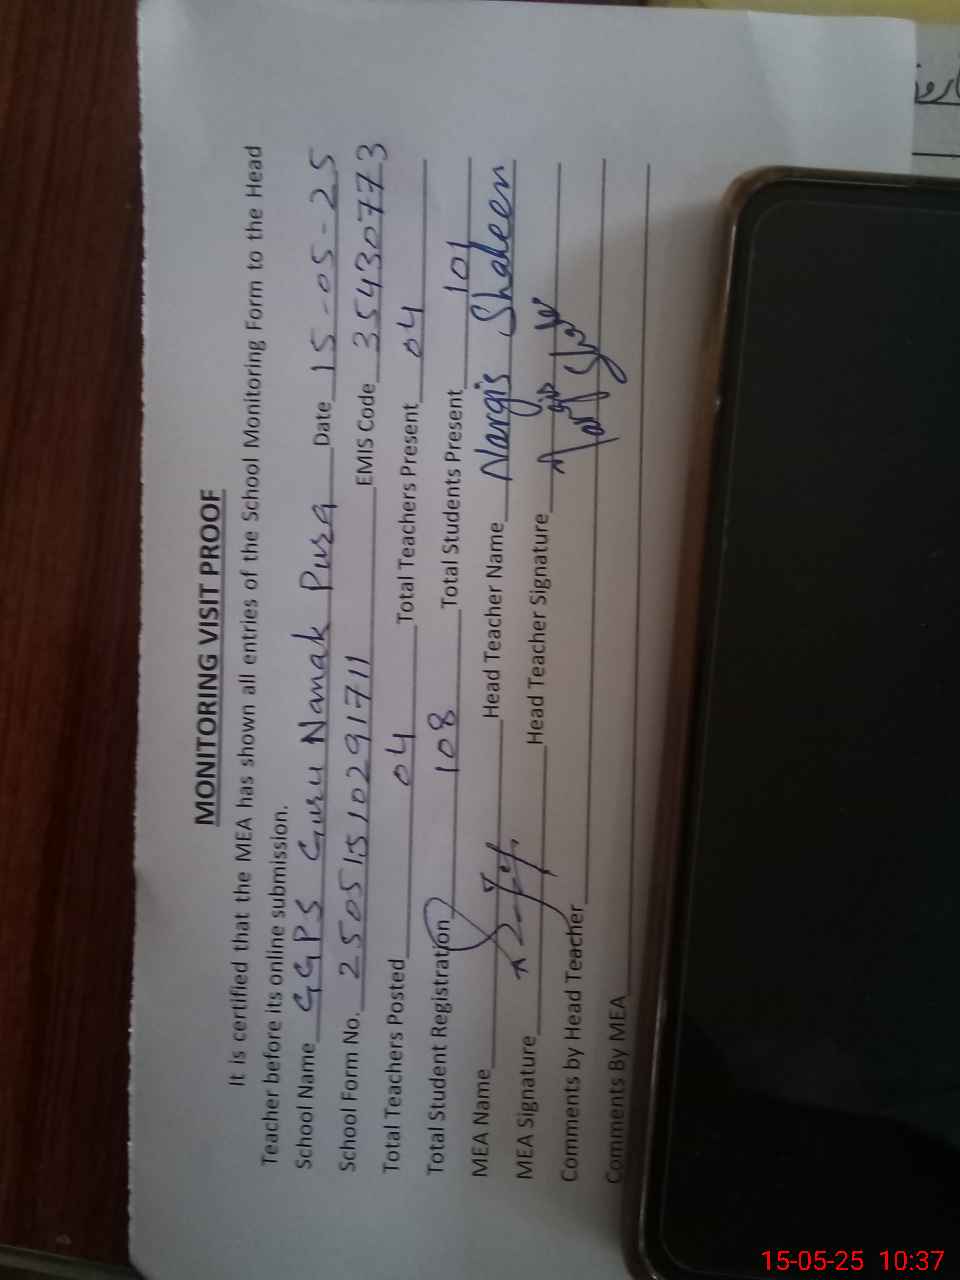 MONITORING VISIT PROOF
It is certified that the MEA has shown all entries of the School Monitoring Form to the Head
Teacher before its online submission.
School Name GGPS Guru Nanak Pura Date 15-05-25
School Form No. 25051510291711 EMIS Code 35430773
Total Teachers Posted 04 Total Teachers Present 04
Total Student Registration 108 Total Students Present 101
MEA Name Head Teacher Name Nargis Shaheen
MEA Signature Head Teacher Signature
Comments by Head Teacher
Comments By MEA
15-05-25 10:37